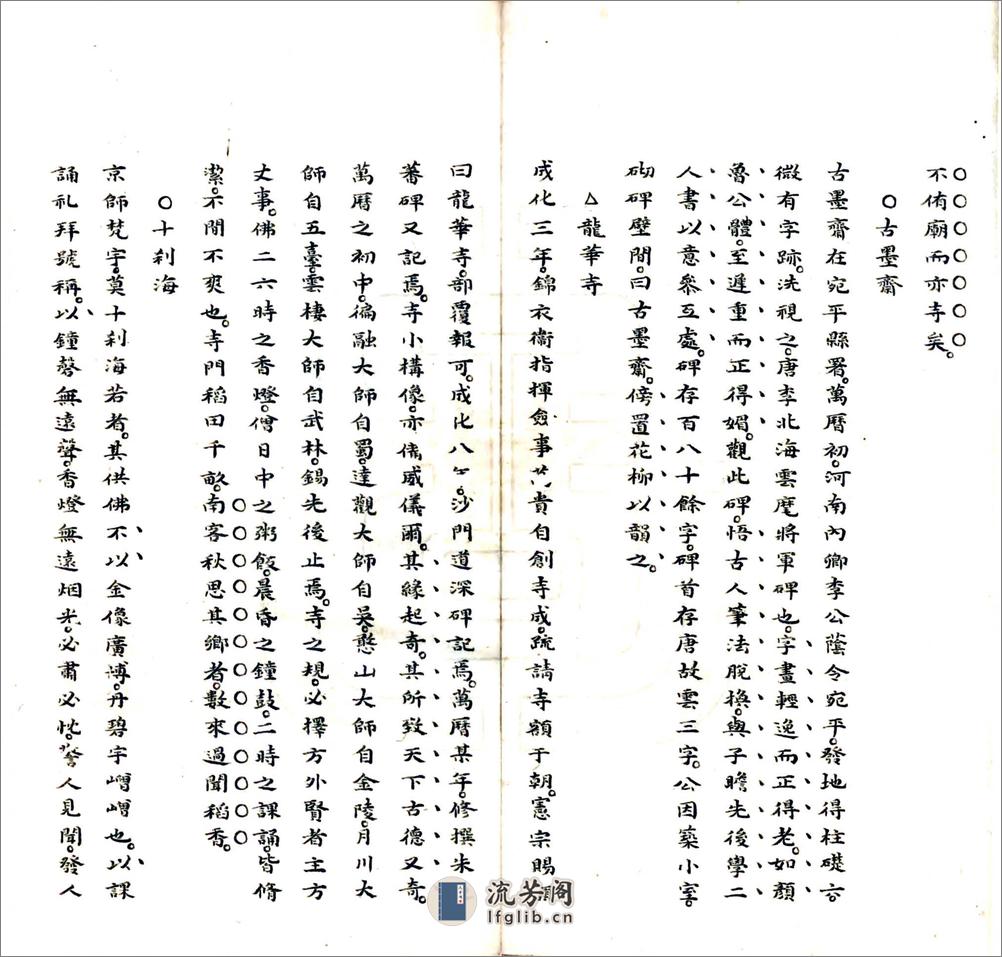 不侑廟而亦寺矣。
○古墨齋
古墨齋在宛平縣署。萬曆初。河南內鄉李公蔭令宛平。發地得柱礎六。
微有字跡。洗視之。唐李北海雲麾將軍碑也。字畫輕逸而正得老。如顏
魯公體。至遲重而正得媚。觀此碑。悟古人筆法脫換。與子瞻先後學二
人書以意參互處。碑存百八十餘字。碑首存唐故雲三字。公因築小室。
砌碑壁間。曰古墨齋。傍置花柳以韻之。
△龍華寺
成化三年。錦衣衛指揮僉事貴自創寺成。疏請寺額于朝。憲宗賜額
曰龍華寺。部覆報可。成化八年。沙門道深碑記焉。萬曆某年。修撰朱
蕃碑又記焉。寺小構像。亦備威儀爾。其緣起奇。其所致天下古德又奇。
萬曆之初中。徧融大師自蜀。達觀大師自吳。憨山大師自金陵。月川大
師自五臺。雲棲大師自武林。錫先後止焉。寺之規。必擇方外賢者主方
丈事。佛二六時之香燈。僧日中之粥飯。晨昏之鐘鼓。二時之課誦。皆脩
潔。不閒不爽也。寺門稻田千畝。南客秋思其鄉者。數來過聞稻香。
○十刹海
京師梵宇。莫十刹海若者。其供佛不以金像廣博。丹碧宇嶒嶒也。以課
誦礼拜號稱。以鐘磬無遠聲。香燈無遠烟光。必肅必忱。警人見聞。發人
流芳阁
lfglib.cn